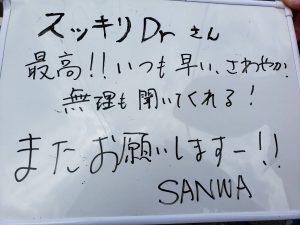 スッキリDrさん
最高!!いつも早い、さわやか
無理も聞いてくれる!
またお願いしますー!!
SANWA